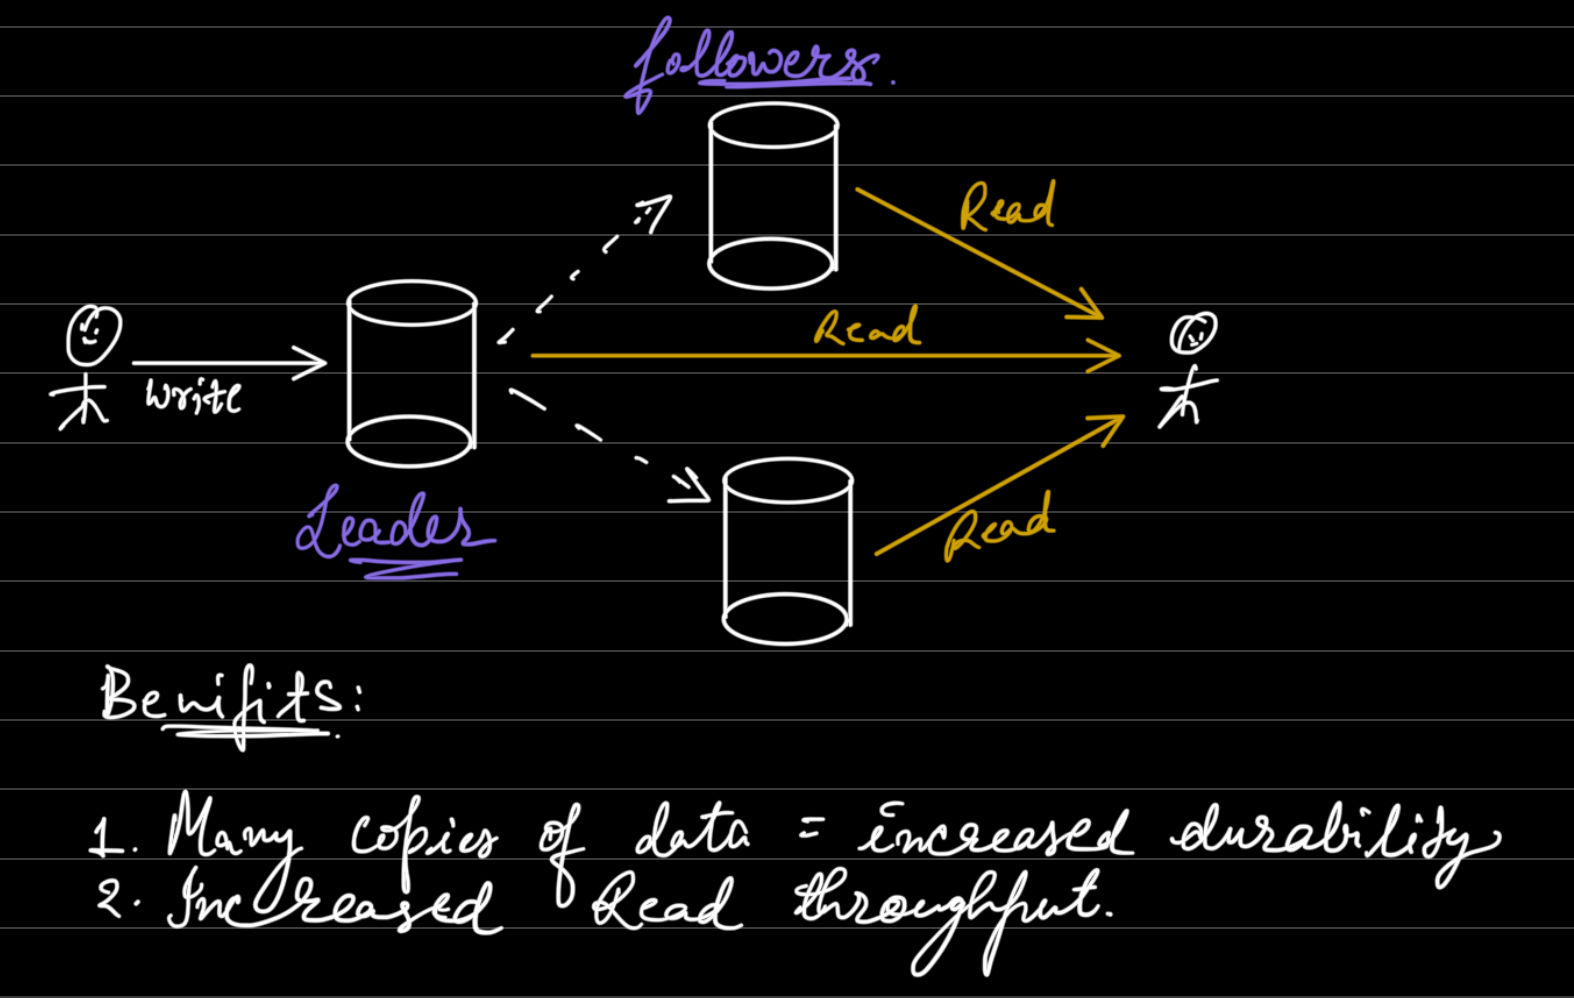 followers.
Read
Read
Write
Leader
Read
Benifits:
1. Many copies of data = increased durability
2. Increased Read throughput.